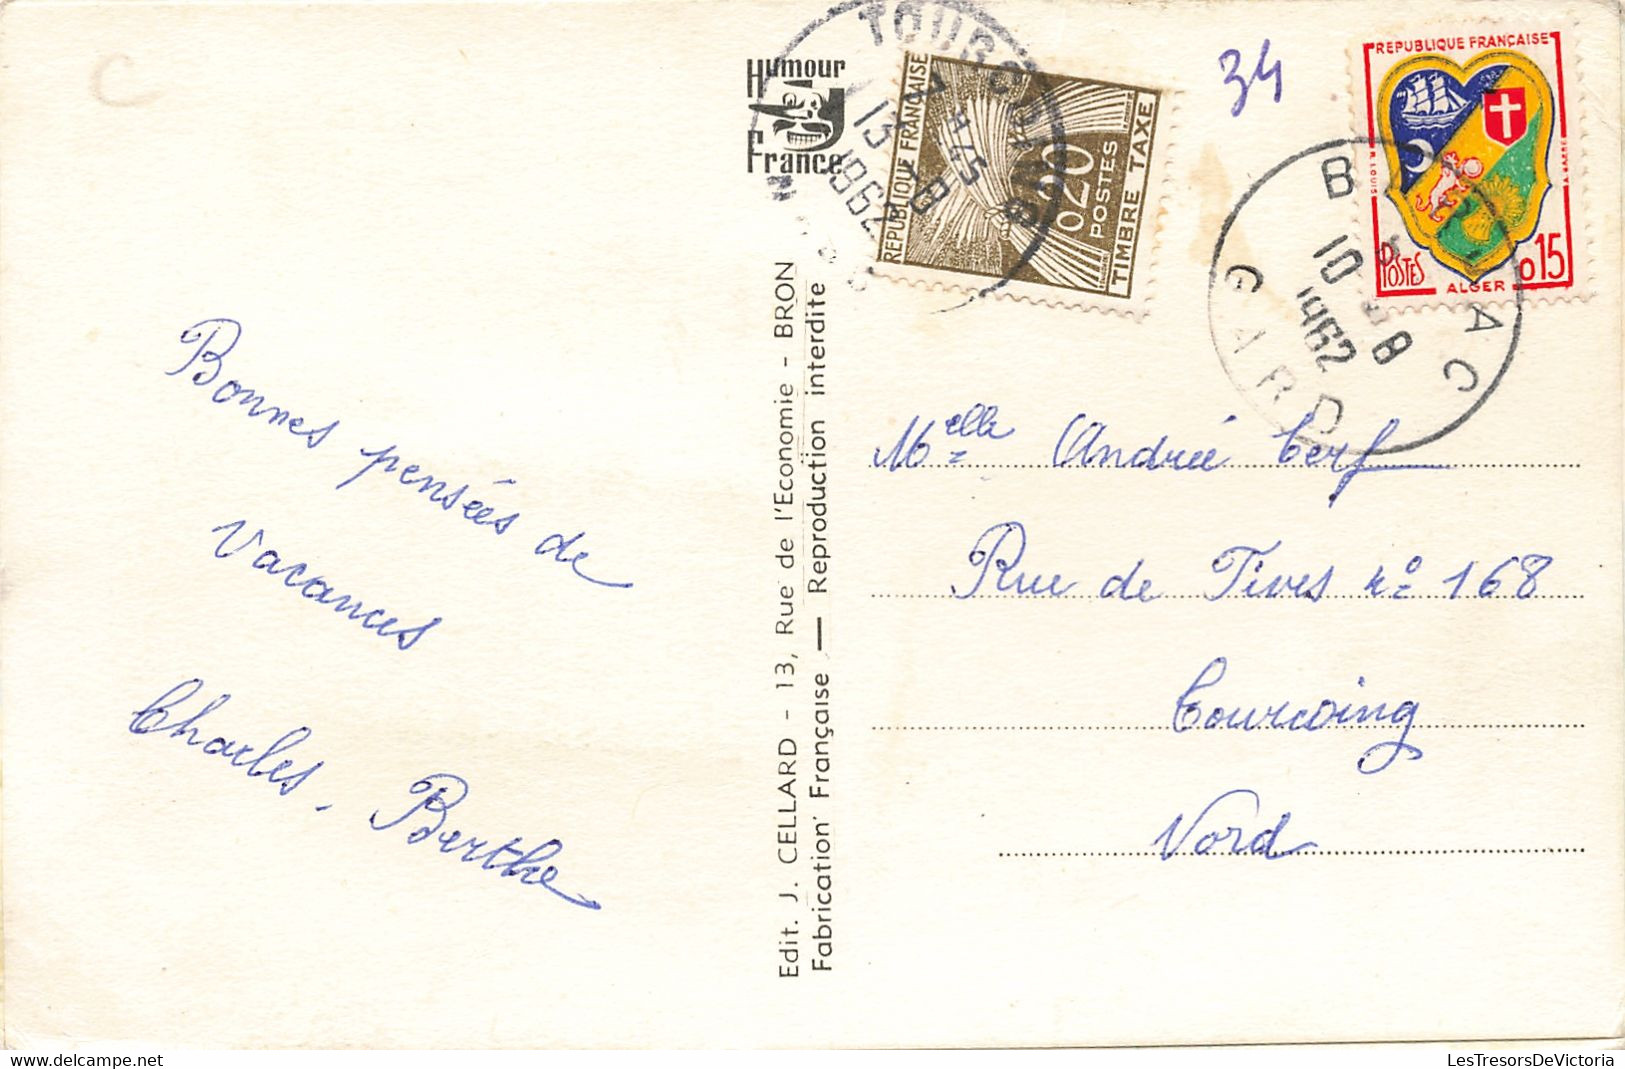 C
Humour
France
TOURCOING
7 H 45
13 - 8
1962
RÉPUBLIQUE FRANÇAISE
0,20
POSTES
TIMBRE TAXE
34
REPUBLIQUE FRANÇAISE
POSTES
ALGER
0,15
10 - 8
1962
GARD
Bonnes pensées de
Vacances
Charles, Berthe
Edit. J. CELLARD - 13, Rue de l'Economie - BRON
Fabrication Française — Reproduction interdite
Melle Andrée Cerf
Rue de Tives nº 168
Tourcoing
Nord
LesTresorsDeVictoria